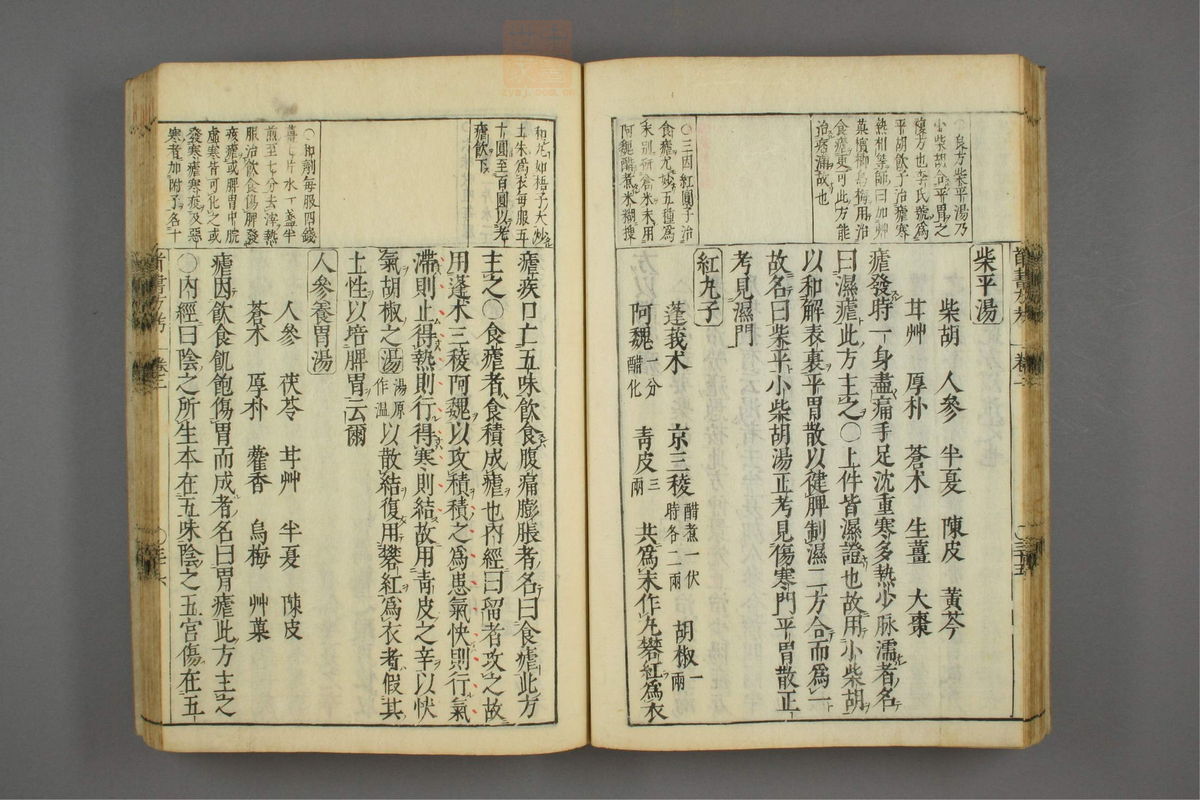 柴平湯
柴胡 人參 半夏 陳皮 黃芩
甘艸 厚朴 蒼术 生薑 大棗
瘧發時一身盡痛手足沈重寒多熱少脉濡者名
曰濕瘧此方主之○上件皆濕證也故用小柴胡
以和解表裏平胃散以健脾制濕二方合而爲一
故名曰柴平小柴胡湯正考見傷寒門平胃散正
考見濕門
紅丸子
蓬莪术 京三稜醋煮一伏時各二兩 胡椒一兩
阿魏一分醋化 青皮三兩 共爲末作丸礬紅爲衣
○良方柴平湯乃
小柴胡合平胃之
穰方也李氏號爲
平胡飲子治瘧寒
熱相半師曰加艸
菓檳榔烏梅用治
食瘧更可此方能
治痞滿故也
○三因紅圓子治
食瘧尤妙五種爲
末別研倉米末用
阿魏醋煮米糊搜
和丸如梧子大炒
土朱爲衣每服五
十圓至百圓以老
瘧飲下
○即劑每服四錢
薑七片水一盞半
煎至七分去滓熱
服治飲食傷脾發
痎瘧或脾胃中脘
虛寒皆可化之或
發寒瘧寒疫及惡
寒者加附子各十
瘧疾口亡五味飲食腹痛膨脹者名曰食瘧此方
主之○食瘧者食積成瘧也內經曰留者攻之故
用蓬术三稜阿魏以攻積積之爲患氣快則行氣
滯則止得熱則行得寒則結故用青皮之辛以快
氣胡椒之湯湯原作溫以散結復用礬紅爲衣者假其
土性以培脾胃云爾
人參養胃湯
人參 茯苓 甘艸 半夏 陳皮
蒼术 厚朴 藿香 烏梅 艸菓
瘧因飲食飢飽傷胃而成者名曰胃瘧此方主之
○內經曰陰之所生本在五味陰之五宮傷在五